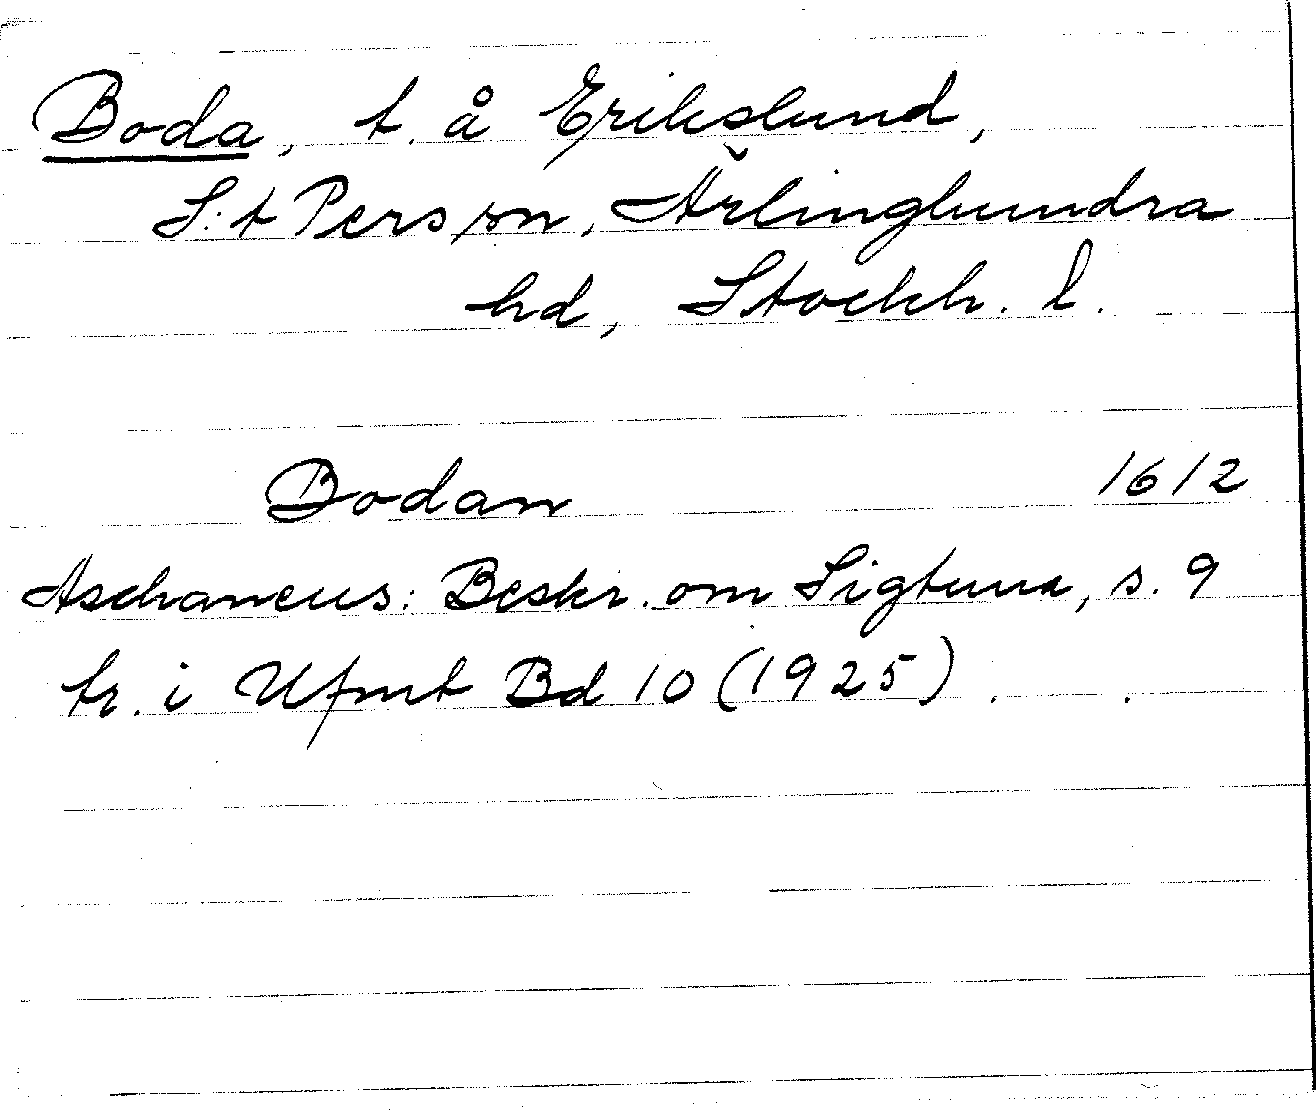 Boda, t. å Erikslund,
S:t Pers sn, Ärlinghundra
hd, Stockh. l.
Bodan 1612
Aschaneus: Beskr. om Sigtuna, s. 9
tr. i Ufmt Bd 10 (1925).